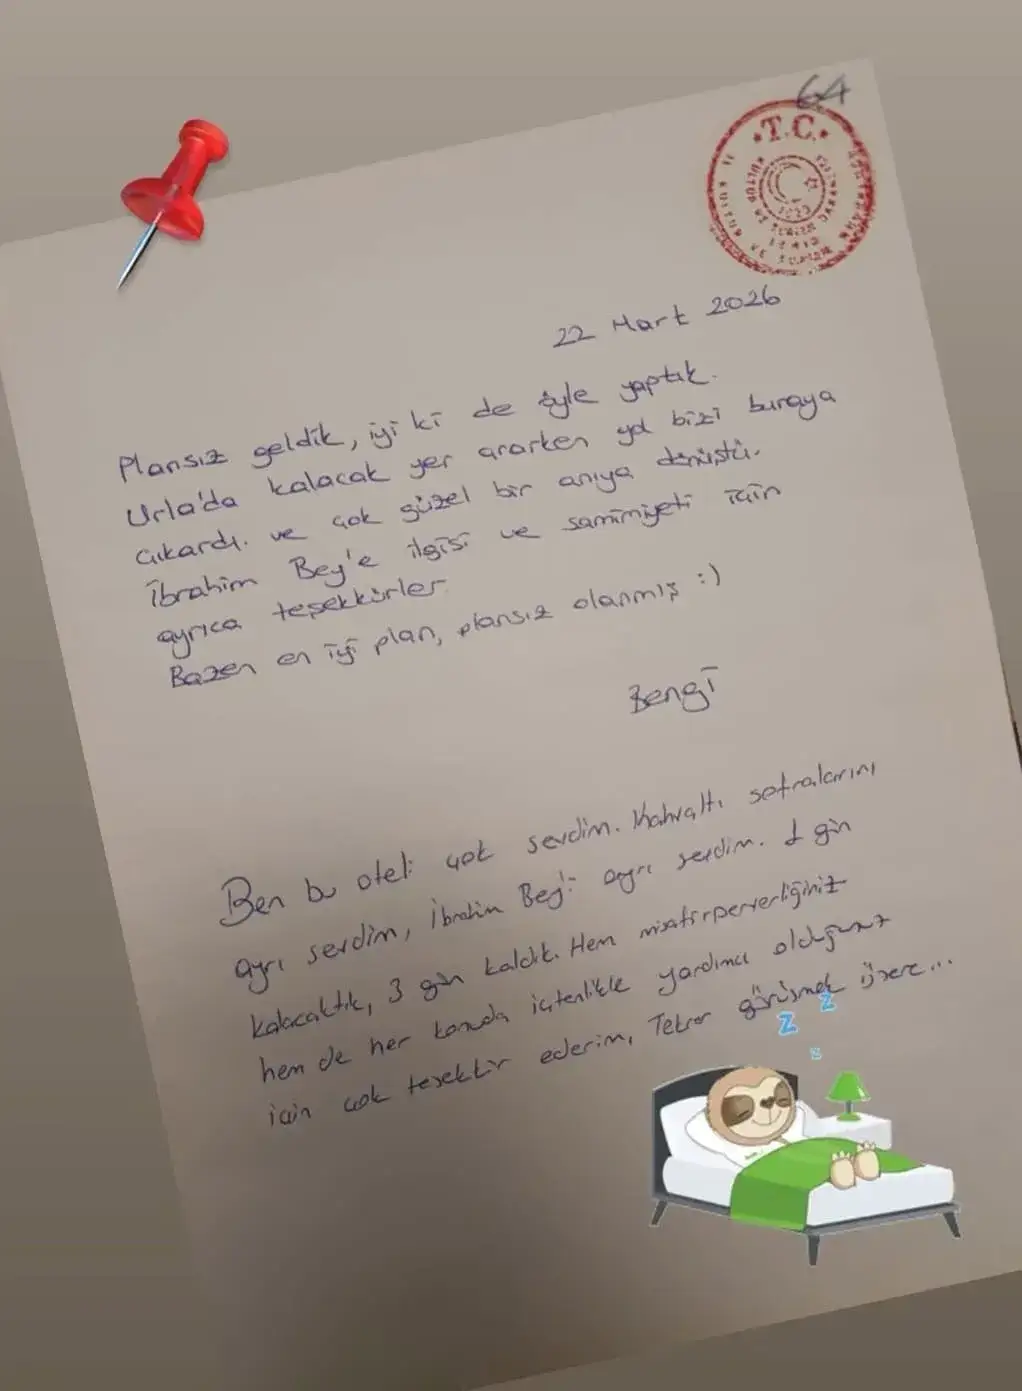 64
T.C.
22 Mart 2026
Plansız geldik, iyi ki de öyle yaptık.
Urla'da kalacak yer ararken yol bizi buraya
çıkardı. ve çok güzel bir anıya dönüştü.
İbrahim Bey'e ilgisi ve samimiyeti için
ayrıca teşekkürler.
Bazen en iyi plan, plansız olanmış :)
Bengi
Ben bu oteli çok sevdim. Kahvaltı sofralarını
ayrı sevdim, İbrahim Bey'i ayrı sevdim. 1 gün
kalacaktık, 3 gün kaldık. Hem misafirperverliğiniz
hem de her konuda içtenlikle yardımcı olduğunuz
için çok teşekkür ederim, Tekrar görüşmek üzere...
Z Z
z